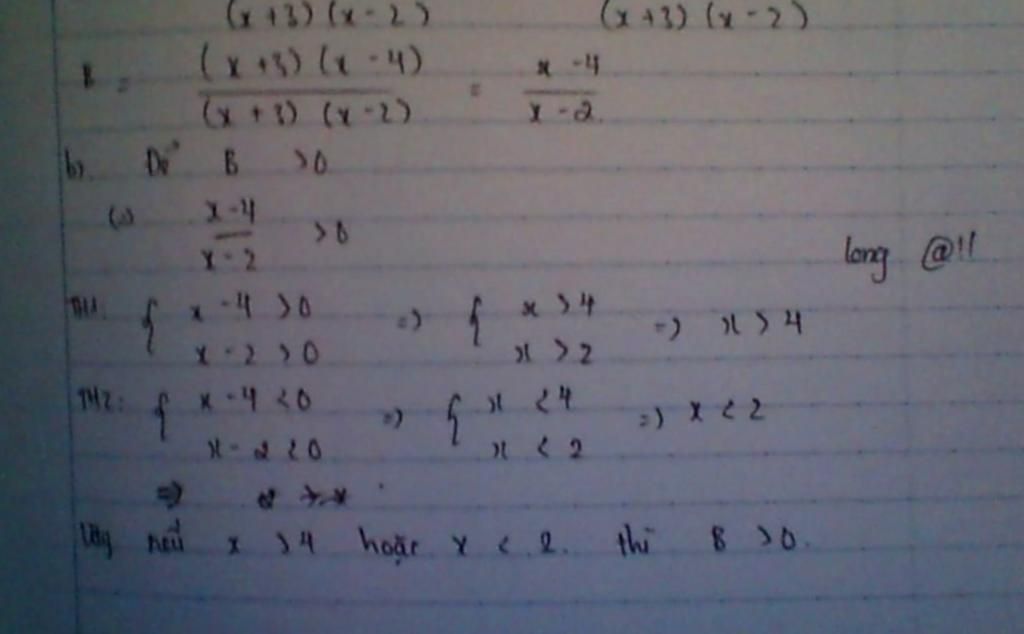 (x+3)(x-2) (x+3)(x-2)
B = (x+3)(x-4) / (x+3)(x-2) = x-4 / x-2
b). Để B >0
(=) x-4 / x-2 >0
long @!!
TH1: { x-4 >0 =) { x >4 =) x >4
x-2 >0 x >2
TH2: { x-4 <0 =) { x <4 =) x <2
x-2 <0 x <2
=)
Vậy nếu x >4 hoặc x < 2. thì B >0.